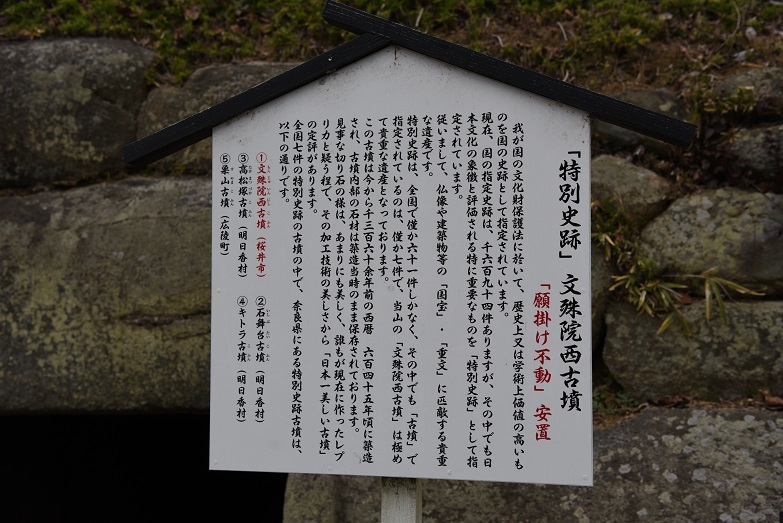 「特別史跡」 文殊院西古墳
「願掛け不動」安置
我が国の文化財保護法に於いて、歴史上又は学術上価値の高いも
のを国の史跡として指定されています。
現在、国の指定史跡は、千六百九十四件ありますが、その中でも日
本文化の象徴と評価される特に重要なものを「特別史跡」として指
定されています。
従いまして、仏像や建築物等の「国宝」・「重文」に匹敵する貴重
な遺産です。
特別史跡は、全国で僅か六十一件しかなく、その中でも「古墳」で
指定されているのは、僅か七件で、当山の「文殊院西古墳」は極め
て貴重な遺産となっております。
この古墳は今から千三百六十余年前の西暦 六百四十五年頃に築造
され、古墳内部の石材は築造当時のまま保存されております。
見事な切り石の様は、あまりにも美しく、誰もが現在に作ったレプ
リカと疑う程で、その加工技術の美しさから「日本一美しい古墳」
の定評があります。
全国七件の特別史跡の古墳の中で、奈良県にある特別史跡古墳は、
以下の通りです。
①文殊院西古墳（桜井市）
②石舞台古墳（明日香村）
③高松塚古墳（明日香村）
④キトラ古墳（明日香村）
⑤巣山古墳（広陵町）